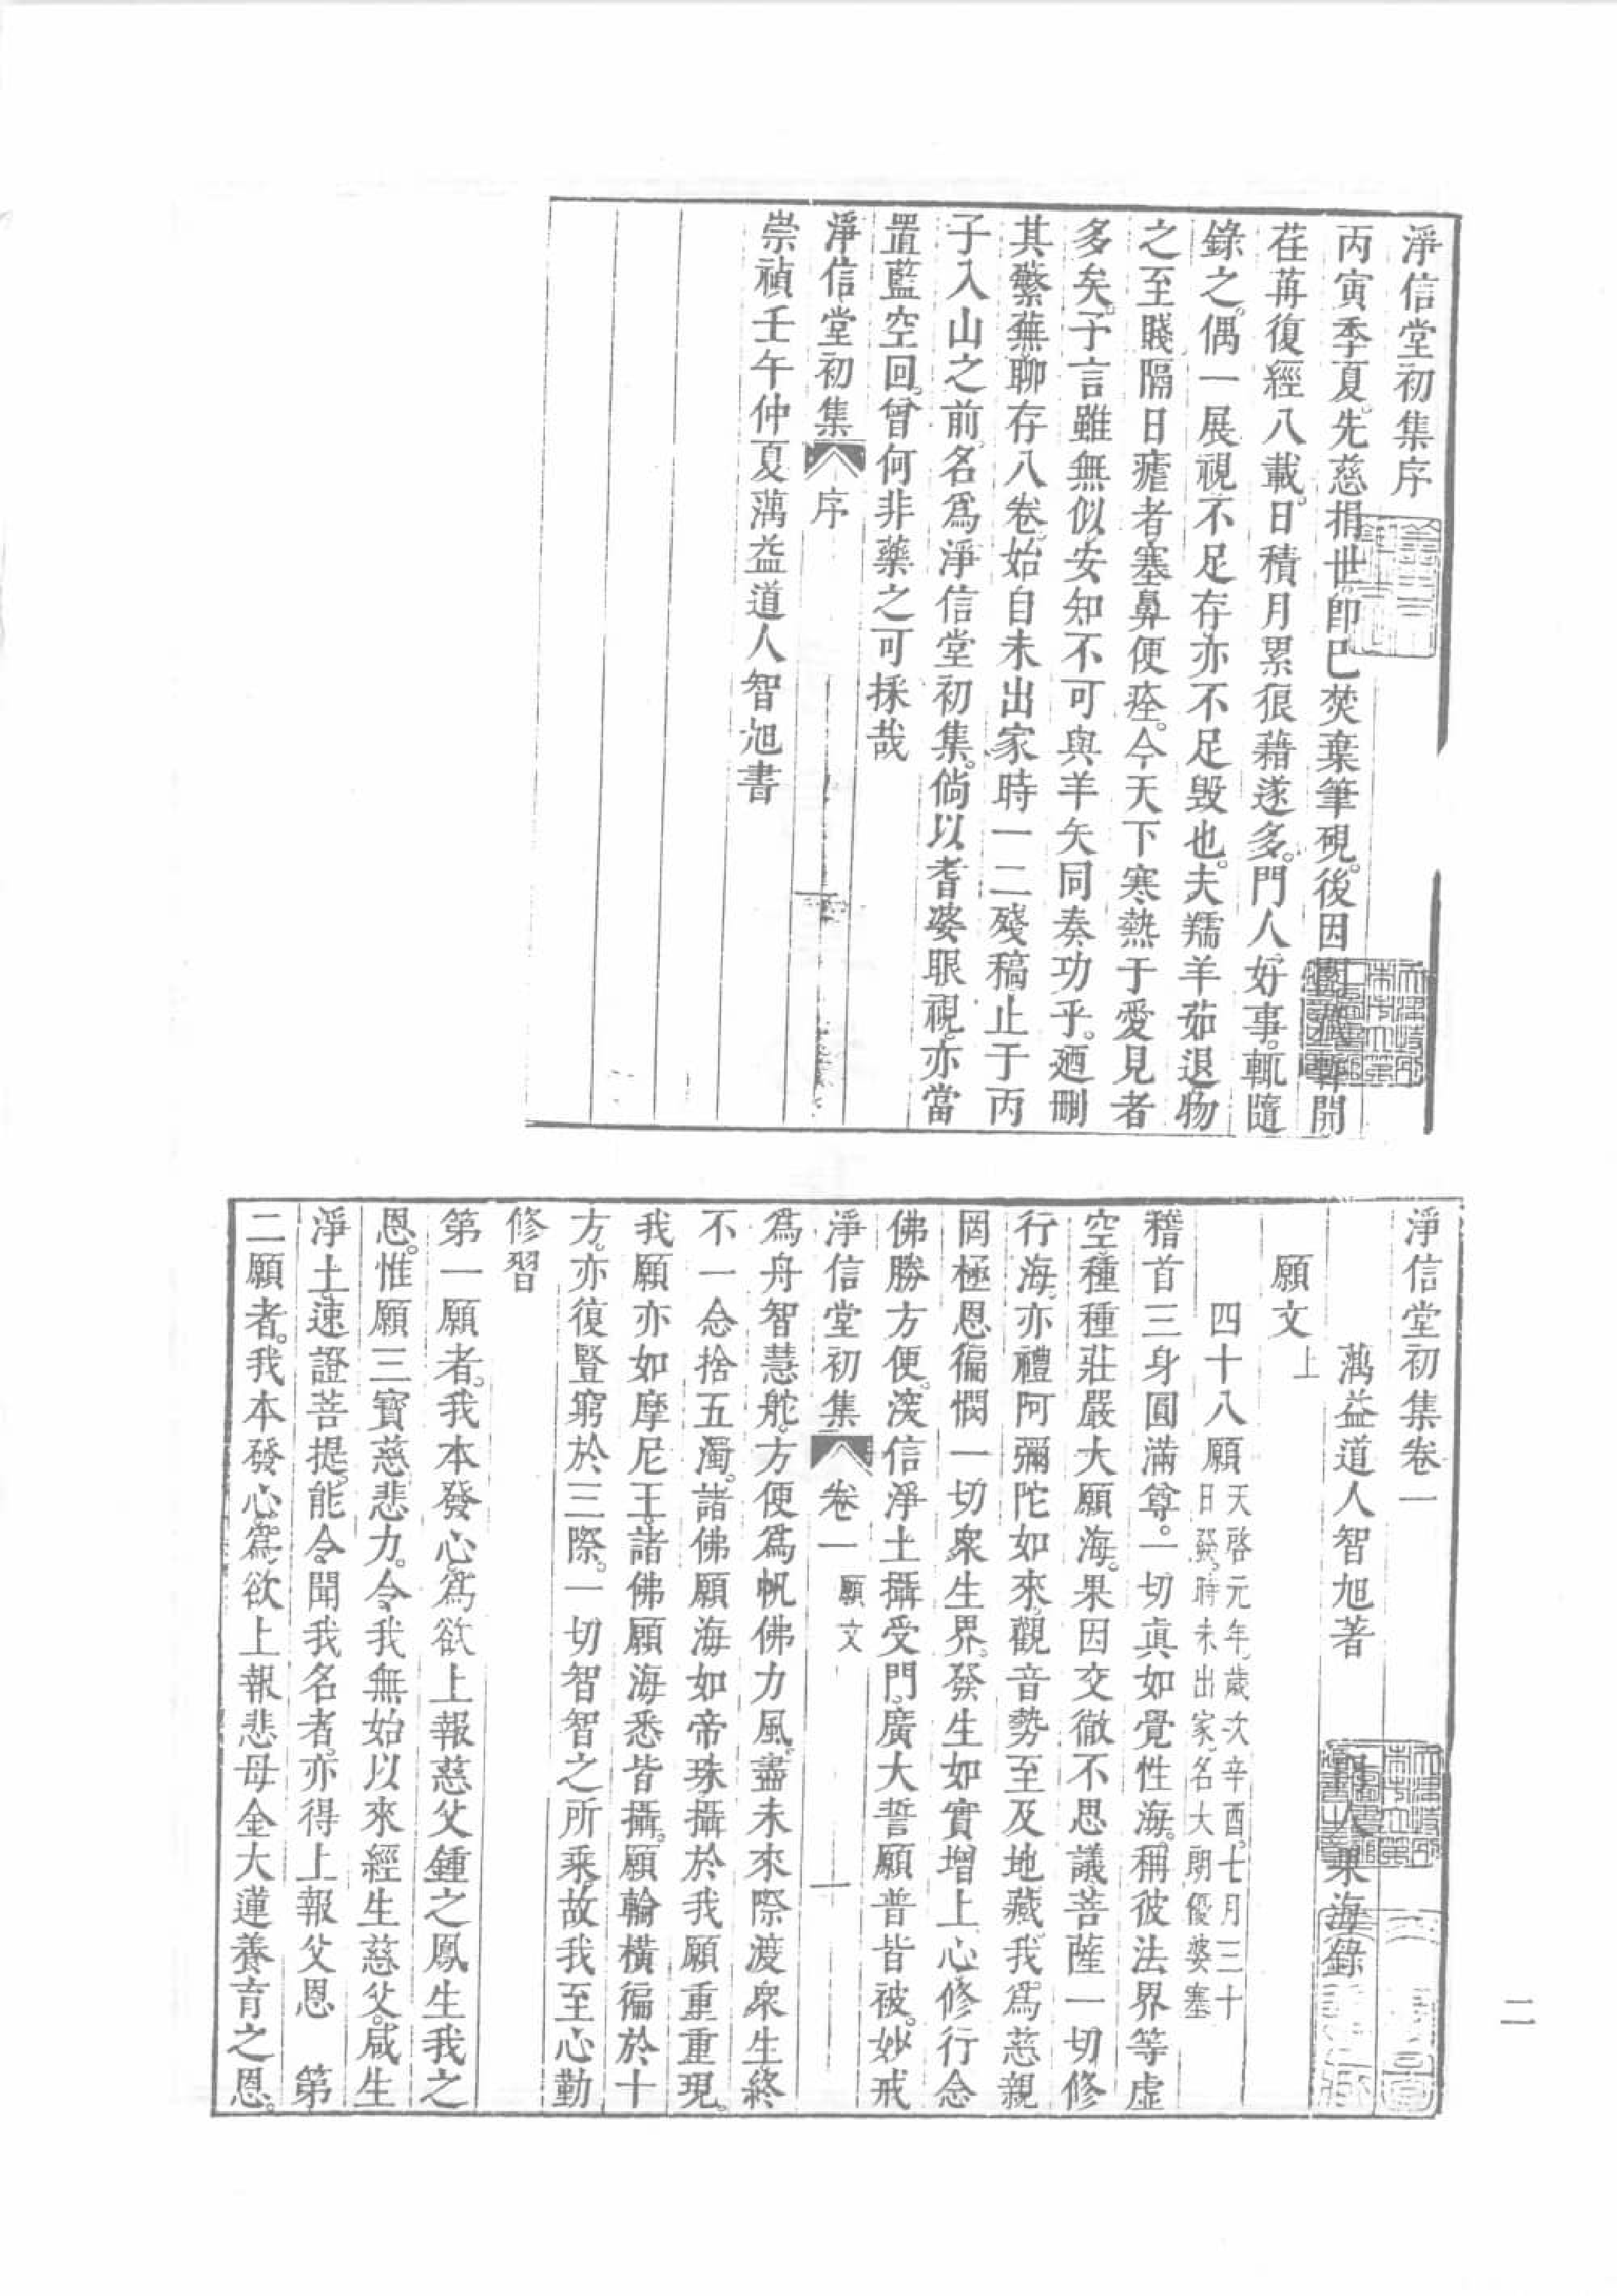 淨信堂初集序
丙寅季夏。先慈捐世。卽已焚棄筆硯。後因暫開
荏苒復經八載。日積月累。狼藉遂多。門人好事。輒隨
錄之。偶一展視。不足存。亦不足毀也。夫羺羊茹退。物
之至賤。隔日瘧者塞鼻便痊。今天下寒熱于愛見者
多矣。予言雖無似。安知不可與羊矢同奏功乎。廼刪
其繁蕪。聊存八卷。始自未出家時一二殘稿。止于丙
子入山之前。名爲淨信堂初集。倘以耆婆眼視。亦當
置藍空回。曾何非藥之可採哉
淨信堂初集 序
崇禎壬午仲夏蕅益道人智旭書
淨信堂初集卷一
蕅益道人智旭著 果海錄
願文上
四十八願 天啓元年。歲次辛酉。七月三十
日發。時未出家。名大朗優婆塞
稽首三身圓滿尊。一切眞如覺性海。稱彼法界等虛
空。種種莊嚴大願海。果因交徹不思議。菩薩一切修
行海。亦禮阿彌陀如來。觀音勢至及地藏。我爲慈親
罔極恩。徧憫一切衆生界。發生如實增上心。修行念
佛勝方便。深信淨土攝受門。廣大誓願普皆被。妙戒
淨信堂初集 卷一 願文 一
爲舟智慧舵。方便爲帆佛力風。盡未來際渡衆生。終
不一念捨五濁。諸佛願海如帝珠。攝於我願重重現。
我願亦如摩尼王。諸佛願海悉皆攝。願輪橫徧於十
方。亦復豎窮於三際。一切智智之所乘。故我至心勤
修習
第一願者。我本發心。爲欲上報慈父鍾之鳳生我之
恩。惟願三寶慈悲力。令我無始以來經生慈父。咸生
淨土。速證菩提。能令聞我名者。亦得上報父恩 第
二願者。我本發心。爲欲上報悲母金大蓮養育之恩。
二